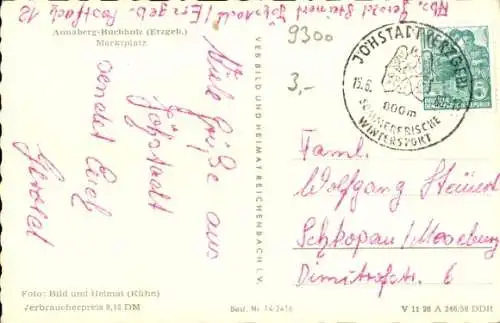 Abs. Gerold Steinert Jöhstadt / Erzgeb. Postfach 12
Annaberg-Buchholz (Erzgeb.)
Marktplatz
Viele Grüße aus
Jöhstadt
sendet Euch
Gerold
Foto: Bild und Heimat (Kühn)
Verbraucherpreis 0,10 DM
VEB BILD UND HEIMAT REICHENBACH I. V.
Best. Nr. 14/2416
9300
3,-
JÖHSTADT (ERZGEB)
15.6.
800m
SOMMERFRISCHE
WINTERSPORT
Faml.
Wolfgang Steinert
Schkopau / Merseburg
Dimitrofstr. 6
V 11 28 A 246/58 DDR